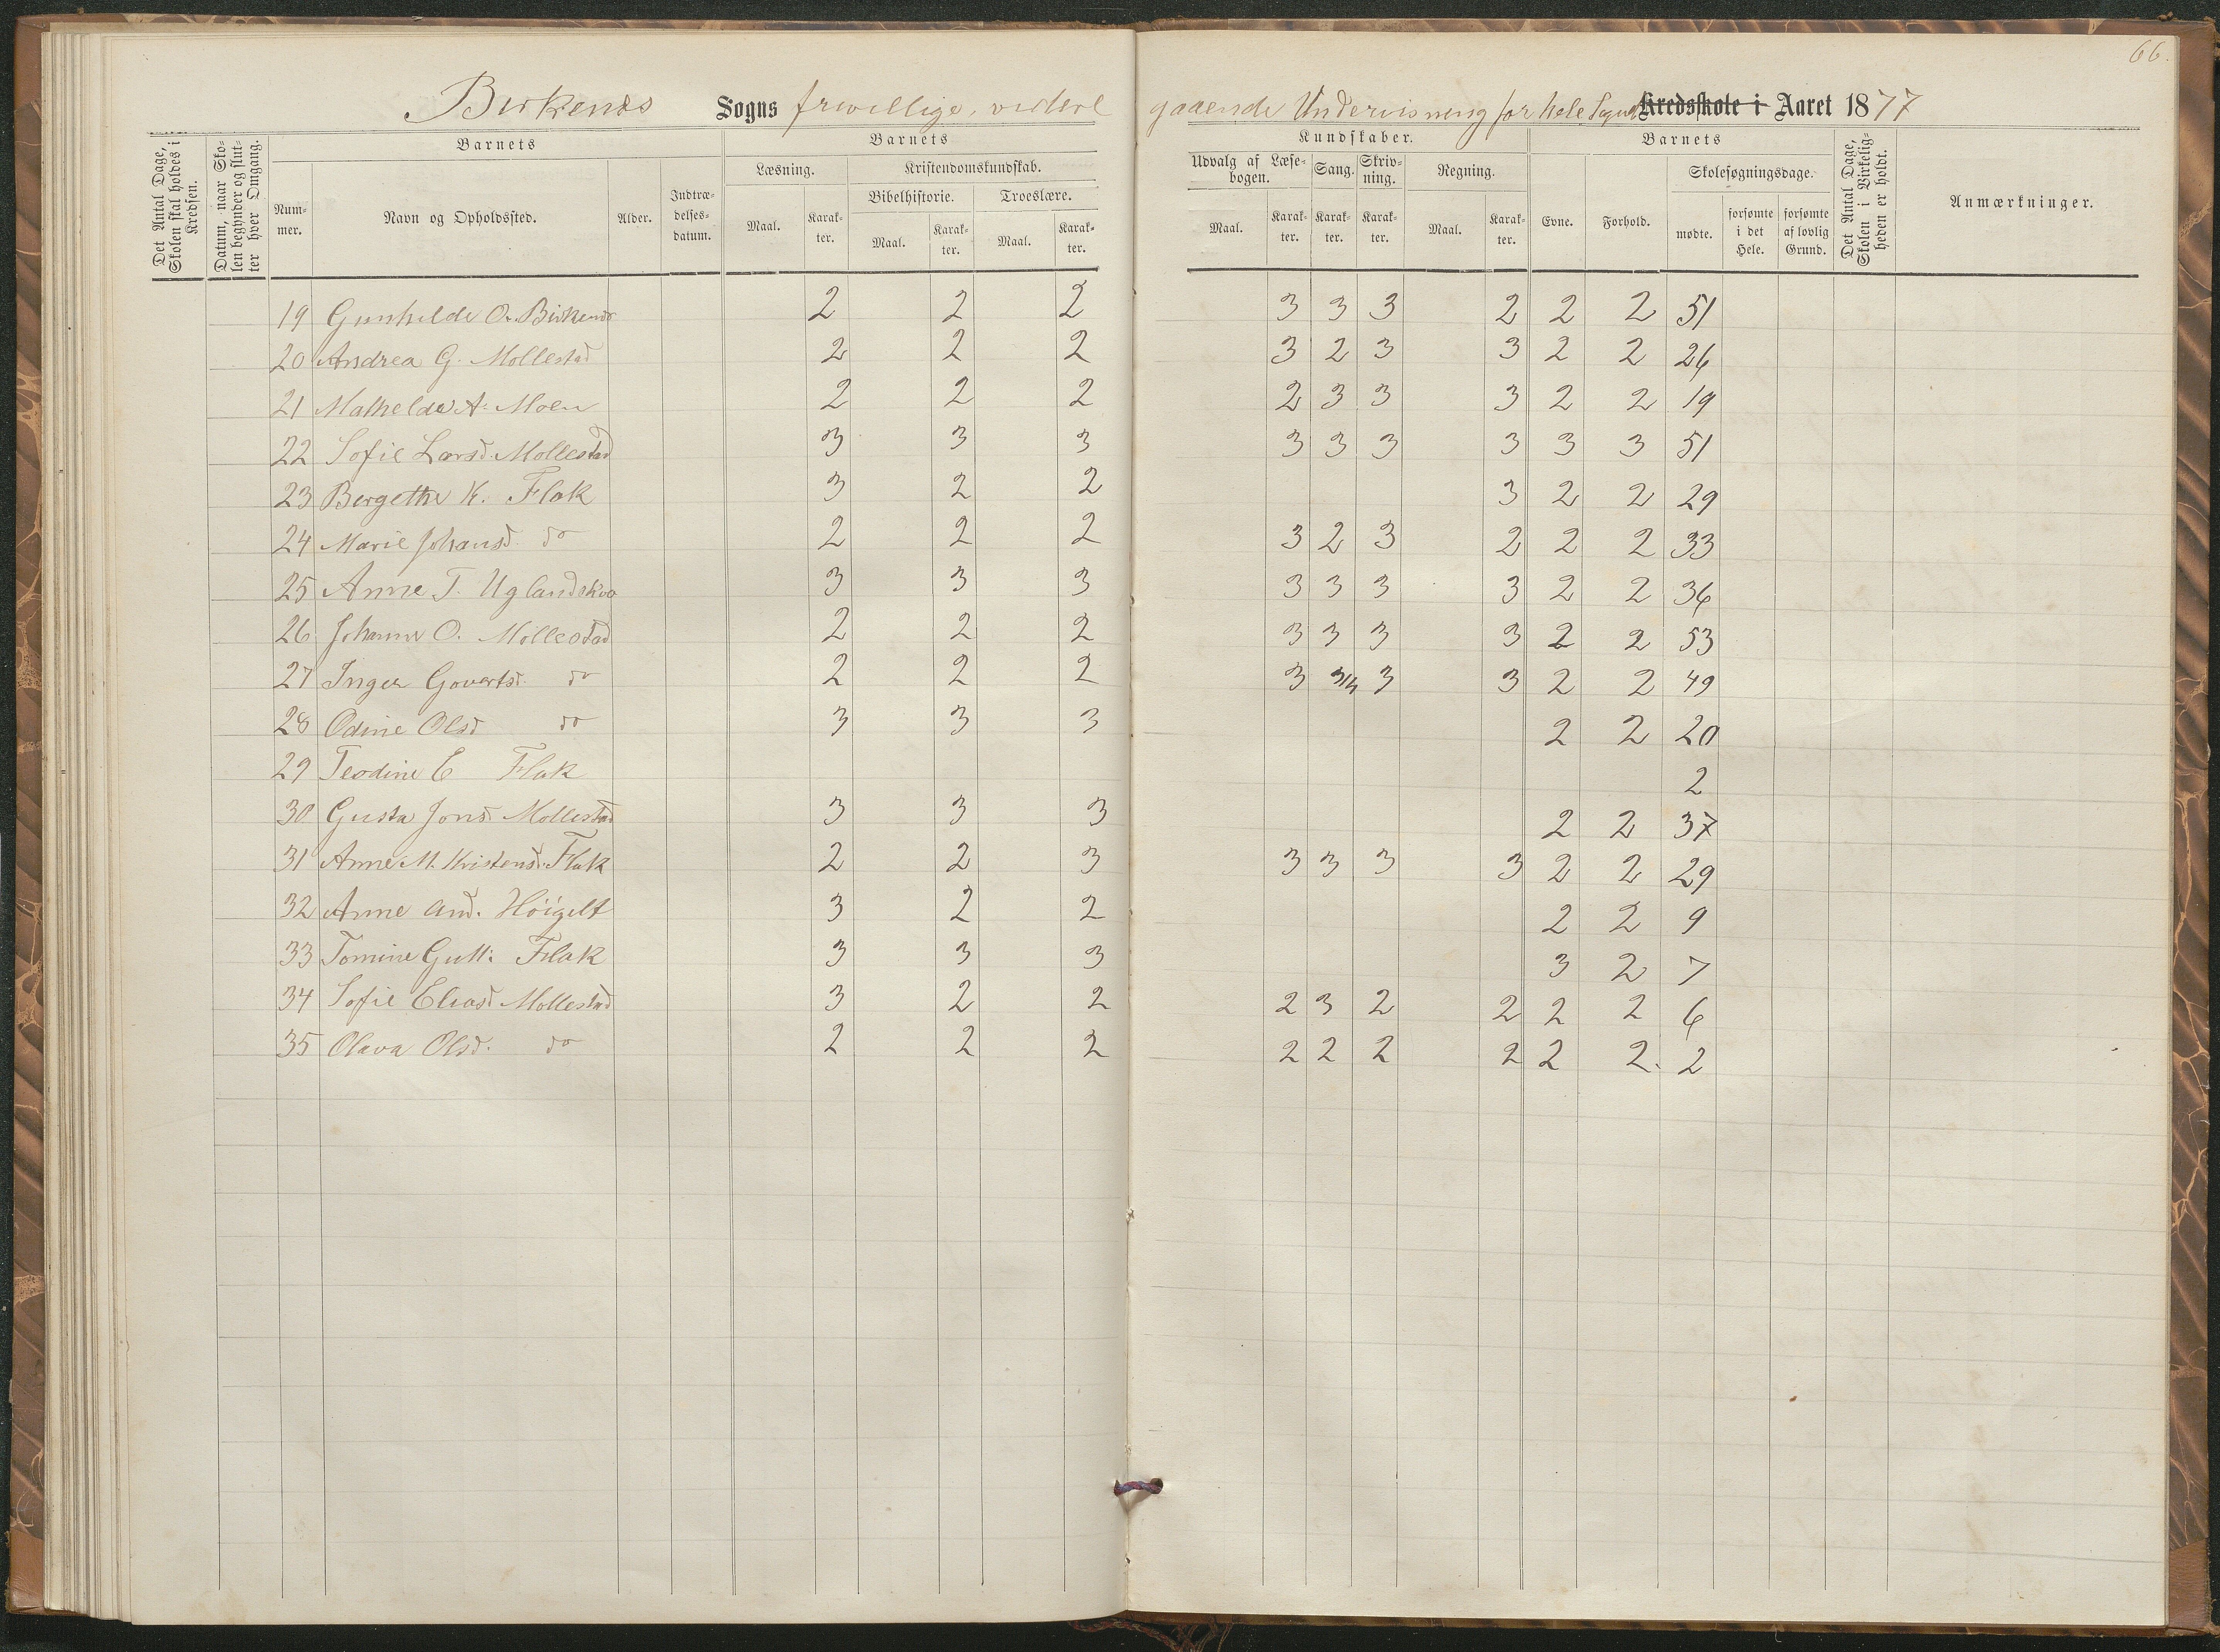 66.
Birkenes Sogns friwillige, videre gaaende Undervisning for hele Sognet Kredsskole i Aaret 1877
Det Antal Dage, Skolen skal holdes i Kredsen.
Datum, naar Skolen begynder og slutter hver Omgang.
Barnets
Nummer.
Navn og Opholdssted.
Alder.
Indtrædelsesdatum.
Barnets
Læsning.
Maal.
Karakter.
Kristendomskundskab.
Bibelhistorie.
Maal.
Karakter.
Troeslære.
Maal.
Karakter.
Kundskaber.
Udvalg af Læsebogen.
Maal.
Karakter.
Sang.
Karakter.
Skrivning.
Karakter.
Regning.
Maal.
Karakter.
Barnets
Evne.
Forhold.
Skolesøgningsdage.
mødte.
forsømte i det Hele.
forsømte af lovlig Grund.
Det Antal Dage, Skolen i Virkeligheden er holdt.
Anmærkninger.
19 Gunhilde O. Birkenes 2 2 2 3 3 3 2 2 2 51
20 Andrea G. Mollestad 2 2 2 3 2 3 3 2 2 26
21 Mathelde A. Moen 2 2 2 2 3 3 3 2 2 19
22 Sofie Larsd. Mollestad 3 3 3 3 3 3 3 3 3 51
23 Bergethe K. Flak 3 2 2 3 2 2 29
24 Marie Johansd. do 2 2 2 3 2 3 2 2 2 33
25 Anne T. Uglandskva 3 3 3 3 3 3 3 2 2 36
26 Johanne O. Mollestad 2 2 2 3 3 3 3 2 2 53
27 Inger Govertsd. do 2 2 2 3 3/4 3 3 2 2 49
28 Odine Olsd do 3 3 3 2 2 20
29 Teodine E Flak 2
30 Gusta Jonsd Mollestad 3 3 3 2 2 37
31 Anne M. Kristensd. Flak 2 2 3 3 3 3 3 2 2 29
32 Anne And. Höigelt 3 2 2 2 2 9
33 Tomine Gutt: Flak 3 3 3 3 2 7
34 Sofie Eliasd Mollestad 3 2 2 2 3 2 2 2 2 6
35 Olava Olsd. do 2 2 2 2 2 2 2 2 2. 2